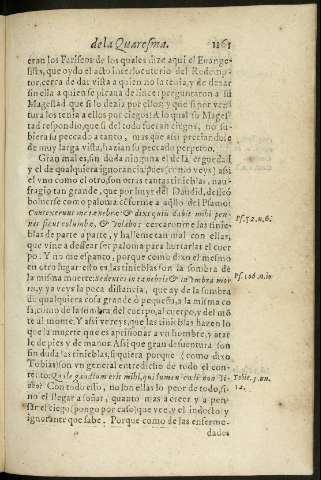 de la Quaresma. 1161
eran los Fariseos de los quales dize aqui el Euange-
lista, que oydo el acto interlocutorio del Redemp-
tor, cerca de dar vista a quien no la tenia, y de dexar
sin ella a quien se picaua de lince: preguntaron a su
Magestad que si lo dezia por ellos; y que si por ven-
tura los tenia a ellos por ciegos: A lo qual su Mages-
tad respondio, que si del todo fueran ciegos, no su-
biera su peccado a tanto, mas que assi preciandose
de muy larga vista, hazian su peccado perpetuo.
Gran mal es, sin duda ninguna el de la ceguedad
y el de qualquiera ignorancia, pues (como veys) assi
el vno como el otro, son otras tantas tinieblas, nau-
fragio tan grande, que por huyr del Dauid, desseó
boluerse como paloma cõforme a aq̃llo del Psalmo:
Contexerunt me tenebræ: & dixi quis dabit mihi pen-
nas sicut columbæ, & volabo? cercaronme las tinie-
blas de parte a parte, y halleme tan mal con ellas,
que vine a dessear ser paloma para hurtarles el cuer
po. Y no me espanto, porque como dixo el mesmo
en otro lugar esto es las tinieblas son la sombra de
la misma muerte: Sedentes in tenebris & in vmbra mor
tis, y ya veys la poca distancia, que ay de la sombra
de qualquiera cosa grande ó pequeña, a la misma co
sa, como de la sombra del cuerpo, al cuerpo, y del mõ
te al monte. Y assi vereys, que las tinieblas hazen lo
que la muerte que es aprissionar a vn hombre, y atar
le de pies y de manos. Assi que gran desuentura son
sin duda las tinieblas, siquiera porque (como dixo
Tobias) son vn general entredicho de todo el con-
tento: Quale gaudium erit mihi, qui lumen cœli non vi-
deo? Con todo esto, no son ellas lo peor de todo, si
no el llegar a soñar, quanto mas a creer y a pen-
sar el ciego (pongo por caso) que vee, y el indocto y
ignorante que sabe. Porque como de las enferme-
dades
Ps. 54. n. 6.
Ps. 106. n. 10.
Tobie. 5. nu.
12.